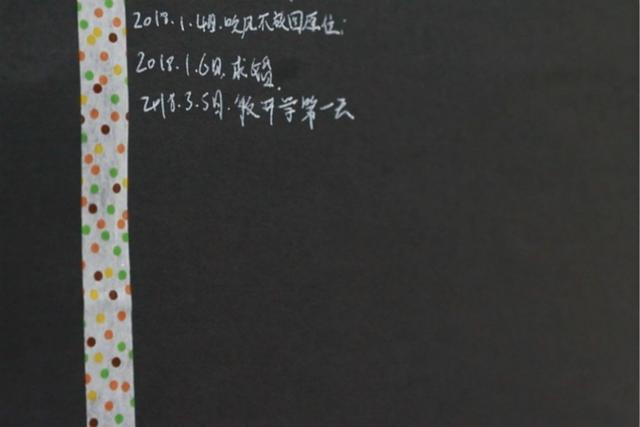 2018.1.4日.吹风不放回原位;
2018.1.6日.求婚.
2018.3.5日.牧开学第一天